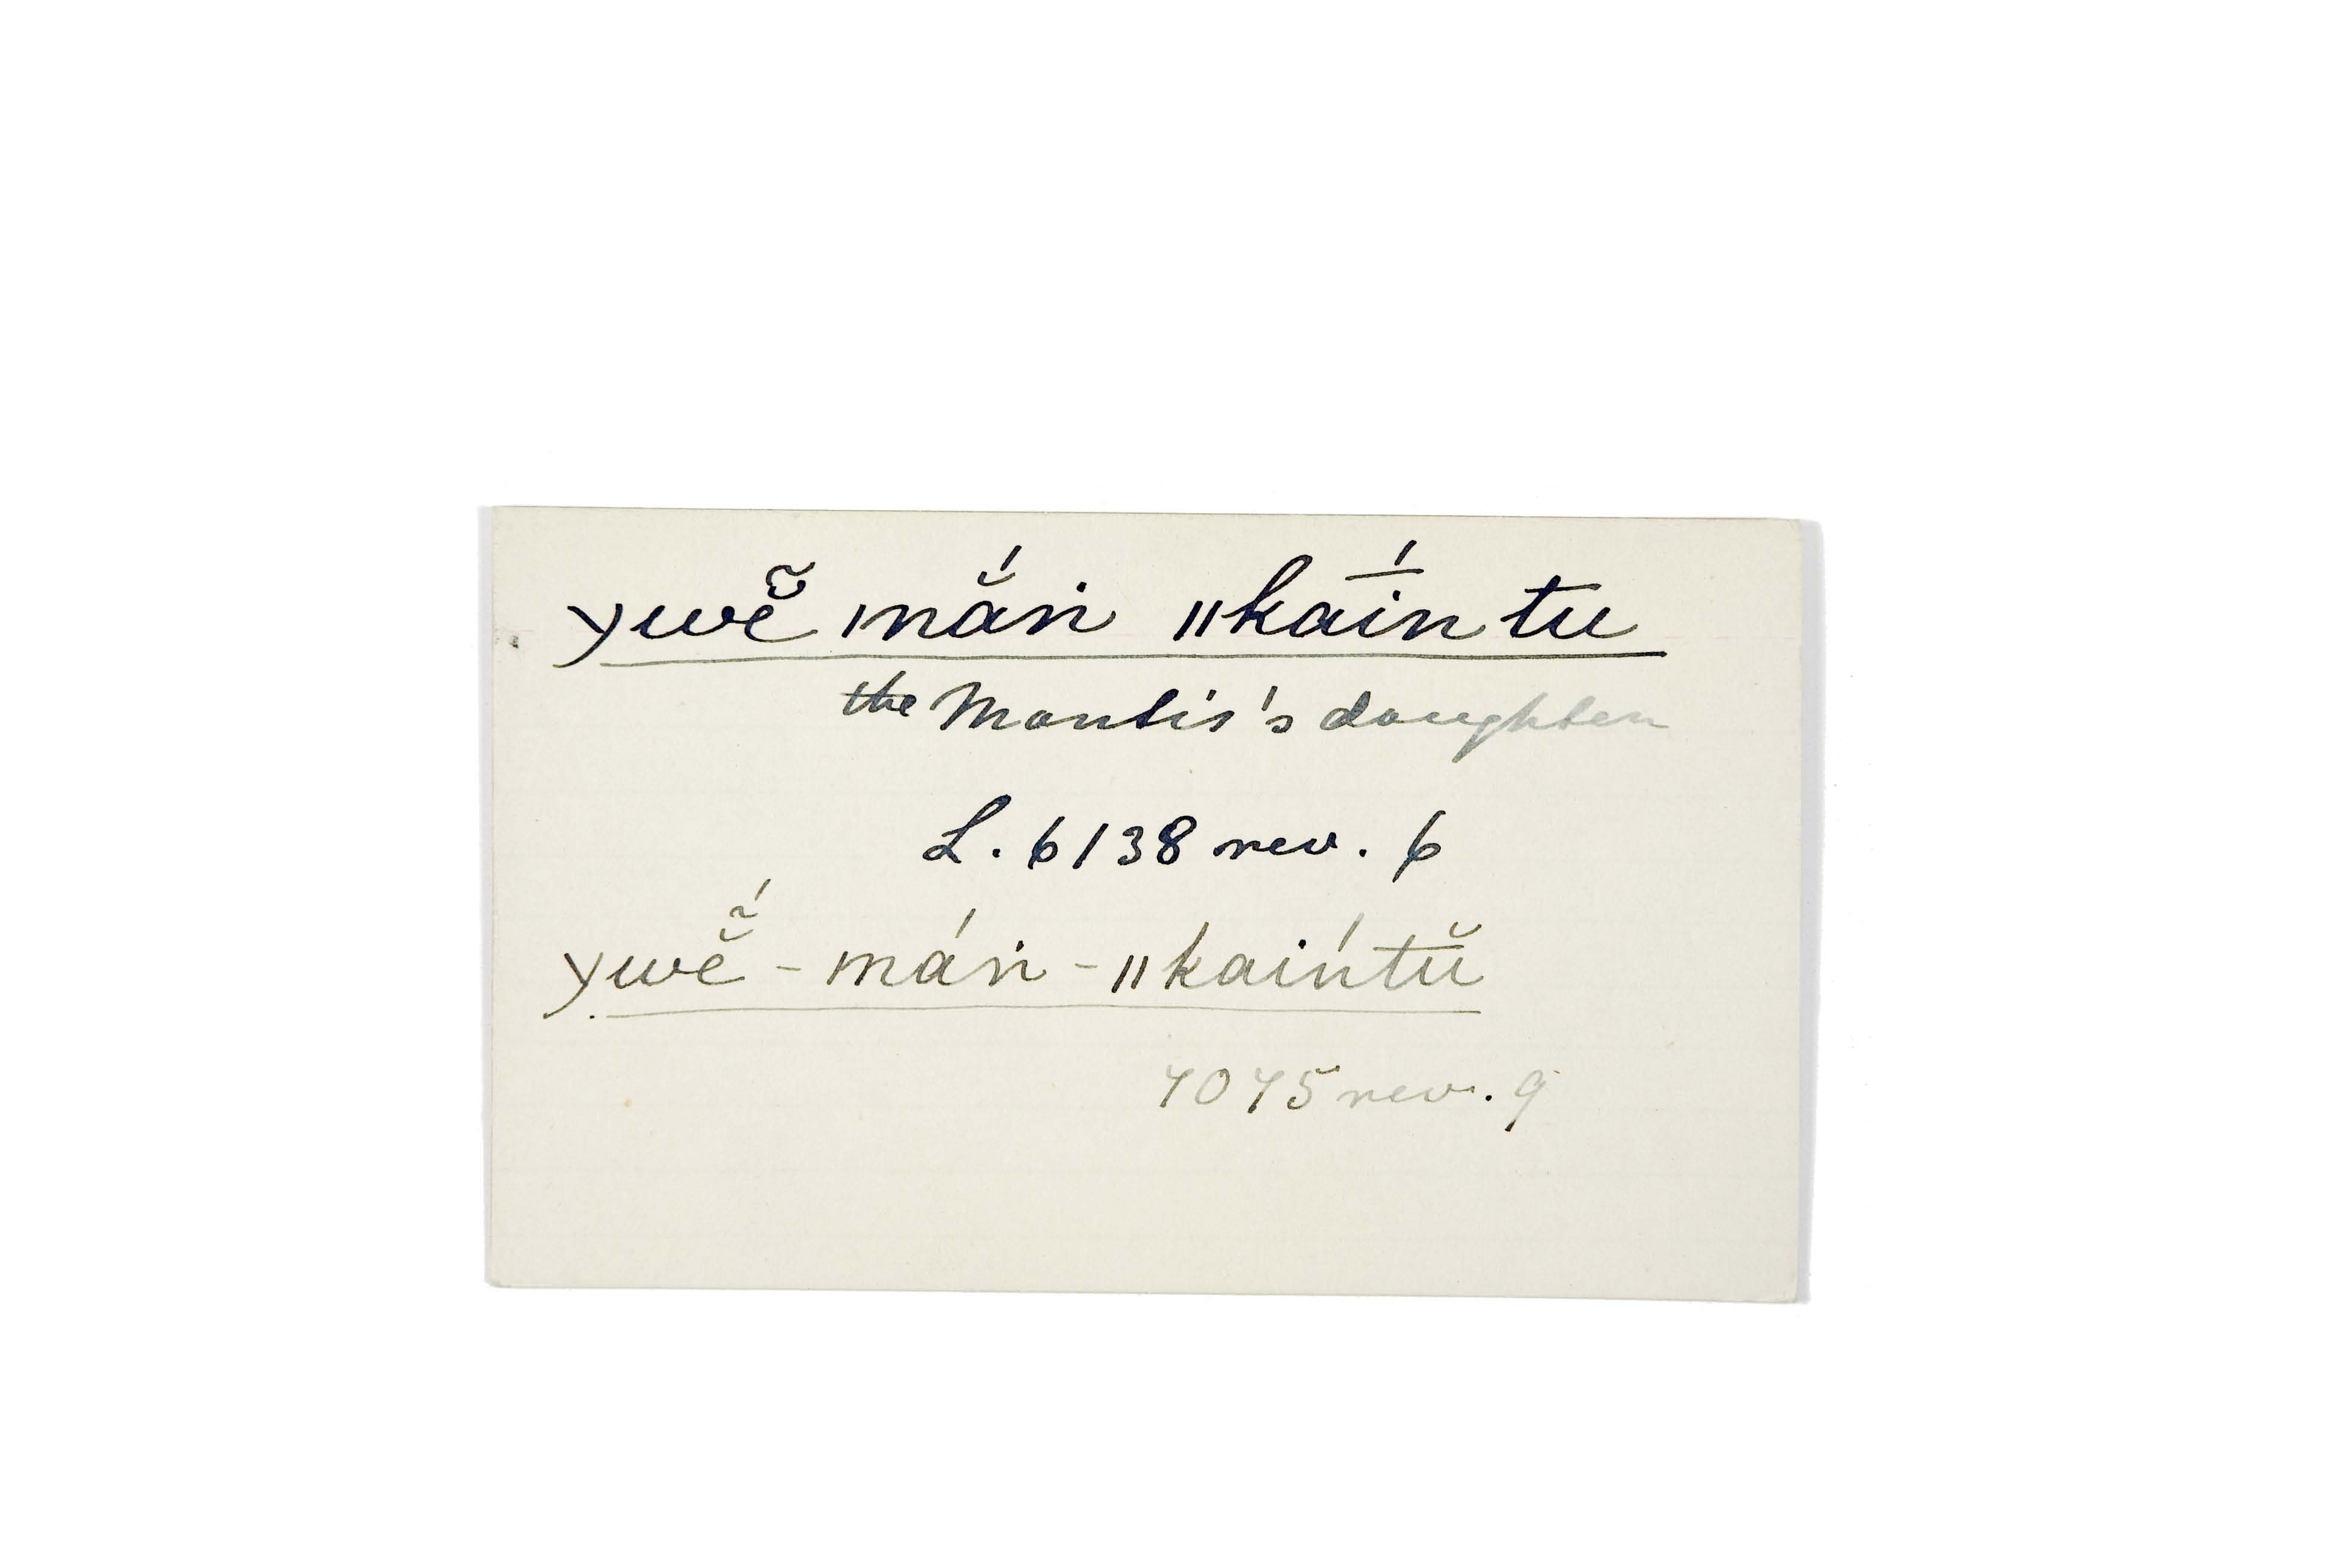 ywẽ̆ mắṅ ǁkā́intu
the Mantis's daughter
L. 6138 rev. 6
ywẽ̆́ - máṅ - ǁkaíntŭ
7075 rev. 9